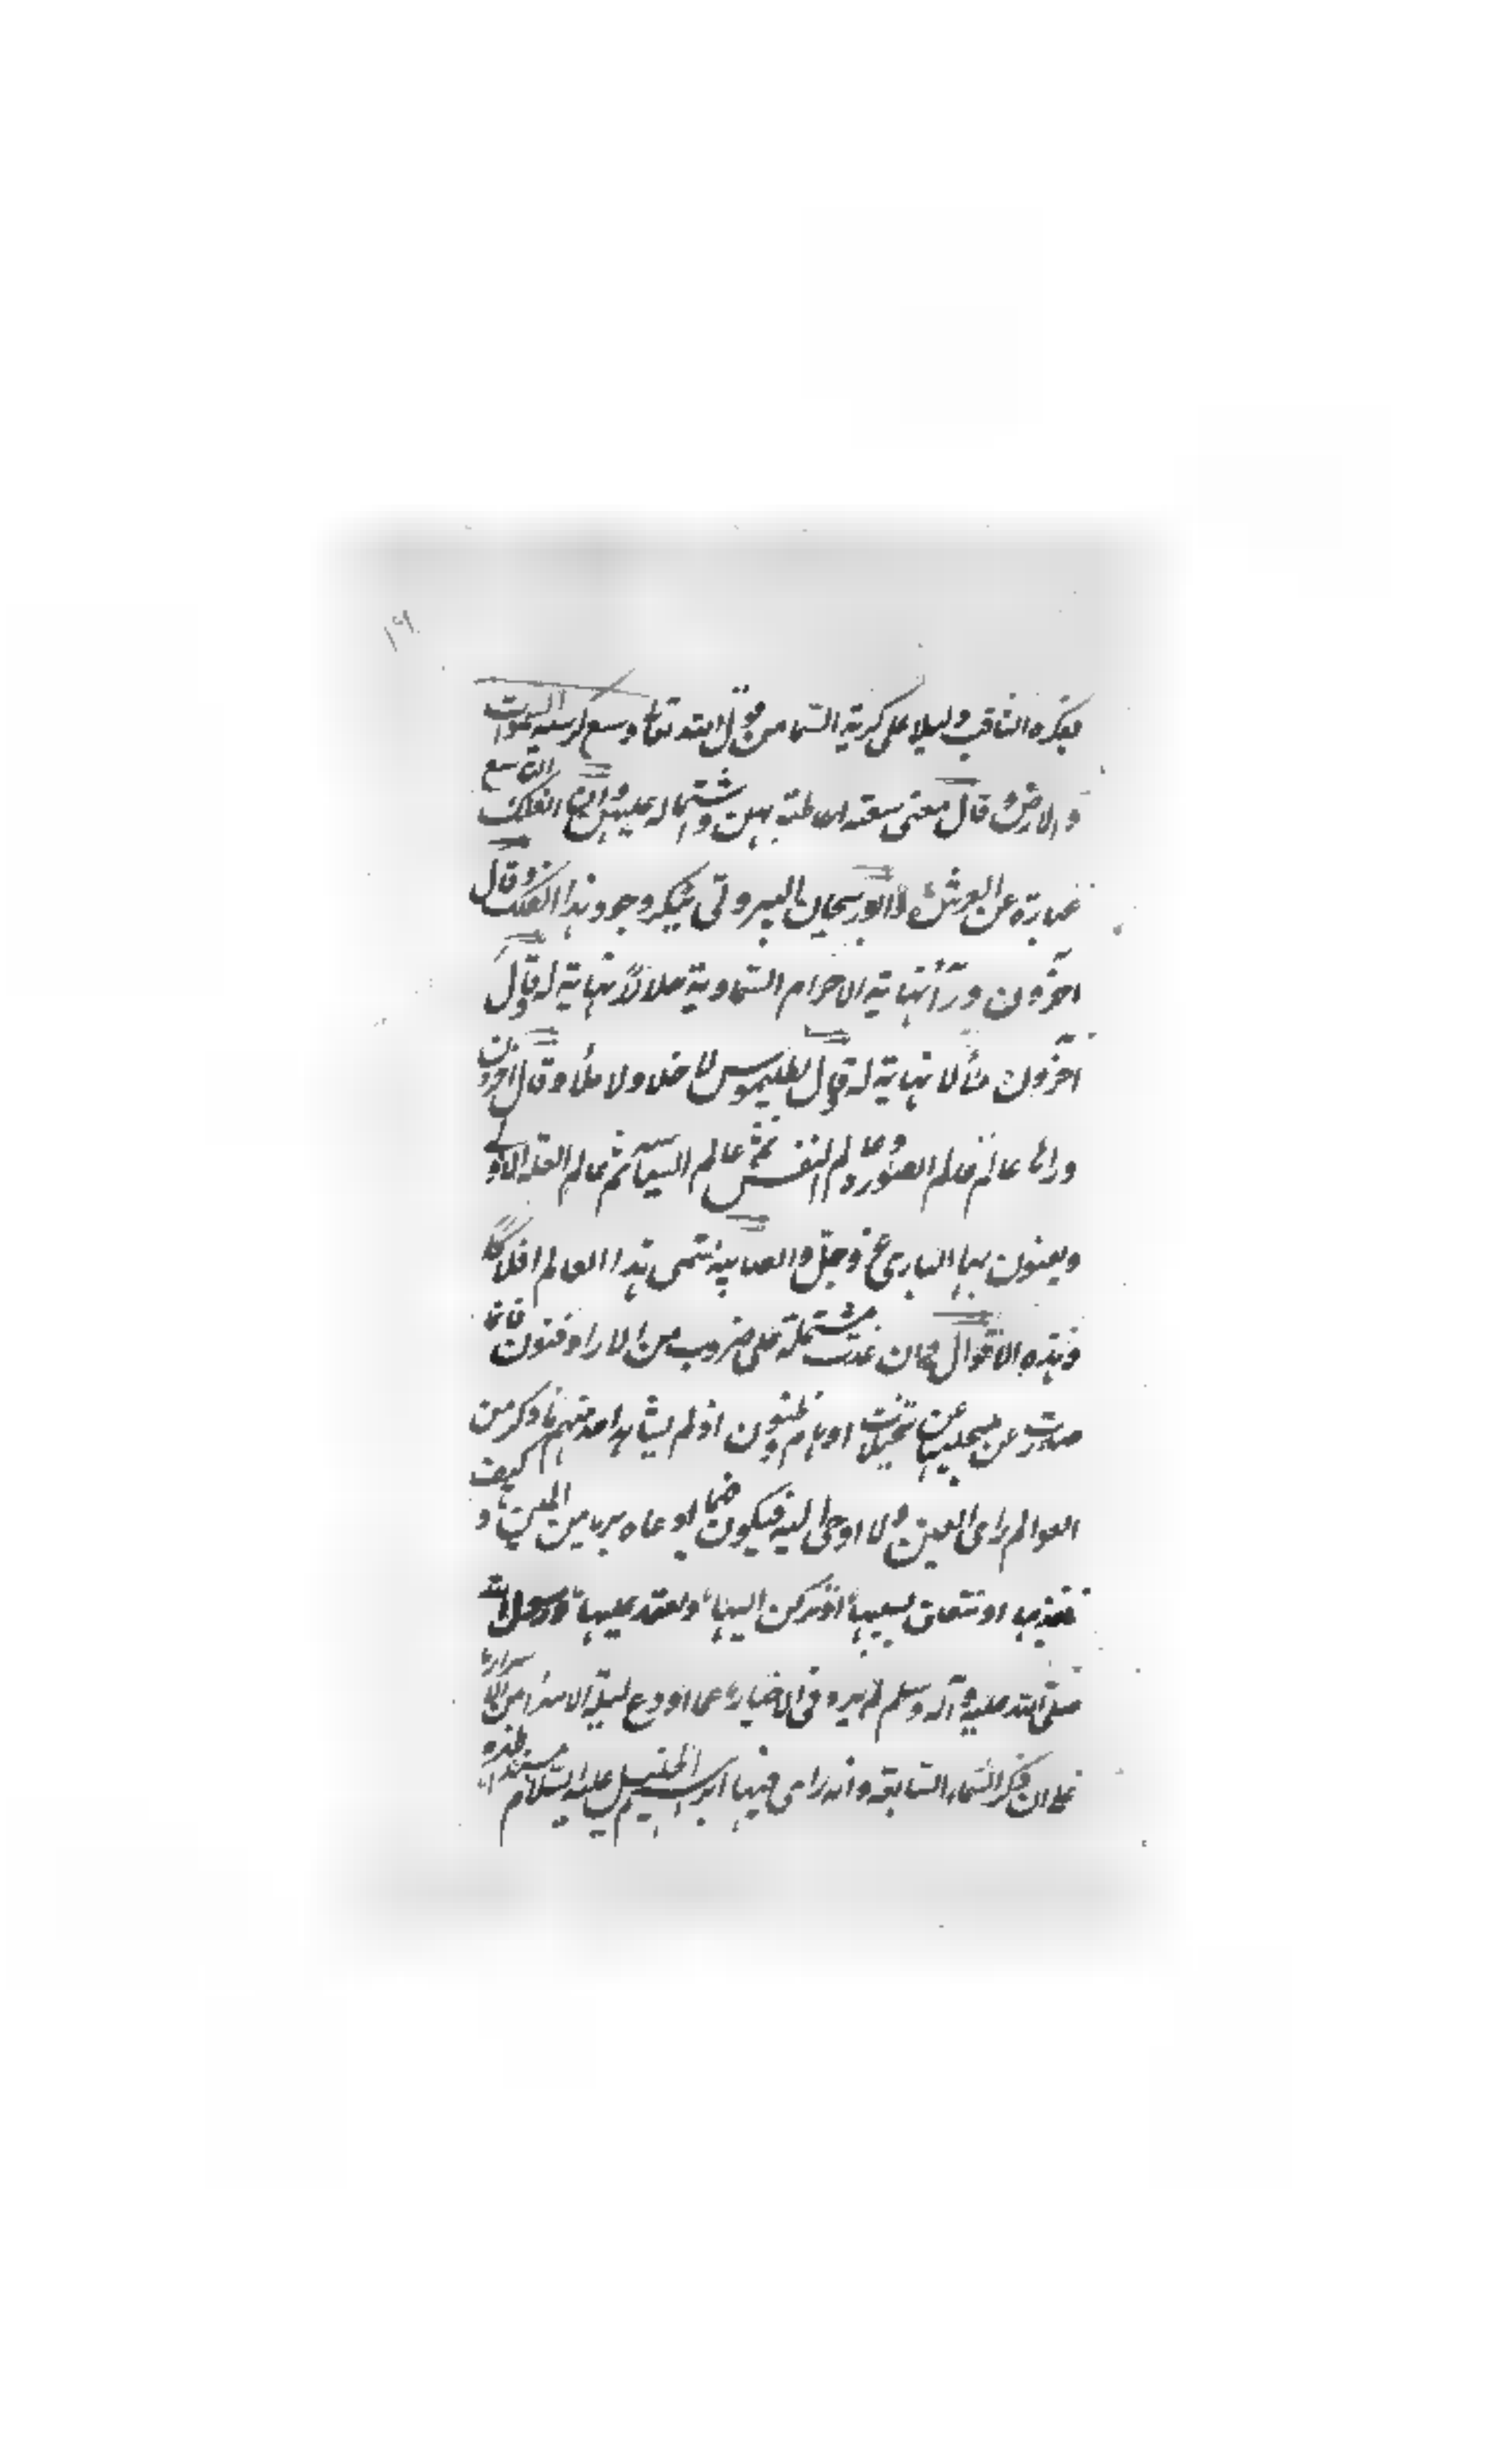 ١٩
بفكره الثاقب دليلا على كرية السما من قول الله تعالى وسع كرسيه السموات
والارض وقال معنى سعته احاطته بهن واشتماله عليهن وان الفلك التاسع
عبارة عن العرش وابو ريحان البيروتي ينكر وجود هذا الفلك وقال
اخرون ورآ نهاية الاجرام السماوية خلا لا نهاية له وقال
اخرون ملأ لا نهاية له وقال بطليموس لا خلا ولا ملأ وقال اخرون
وراها عالم عالم الصور وعالم النفس ثم عالم السياسة ثم عالم العلة الاولى
ويعنون بها الباري عز وجل والصابية تسمى هذا العالم افلاكا
وهذه الاقوال وان غدت مشتملة على ضروب من الارا وفنون فانها
صدرت عن تخيلات اوهام وظنون اذ لم يشاهد احد منهم ما ذكر من
العوالم راى العين ولا اوحى اليه فيكون ادعاه براهين كيف
او تتعلق بسببها او تركن اليها وتعتمد عليها ورسول الله
صلى الله عليه وآله وسلم لم يرد فى الاخبار عما اودع ليلة الاسرا من الاسرار
على ان ذكر السماء السابعة وانه راى فيها ابرهيم الخليل عليه السلام مسندا ظهره